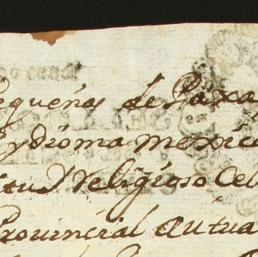 equeñas de Paxa
Ydioma mexic
tud Religioso cel
Provincial actua